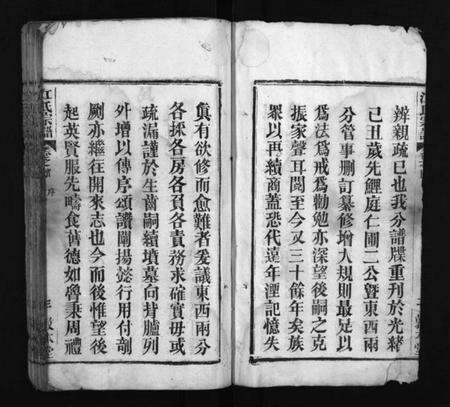 辨親疏已也我分譜牒重刊於光緒
己丑歲先鯉庭仁圃二公暨東西兩
分管事刪訂纂修增大規則最足以
為法為戒為勸勉亦深望後嗣之克
振家聲耳閱至今又三十餘年矣族
眾以再續商蓋恐代遠年湮記憶失
真有欲修而愈難者爰議東西兩分
各採各房各頁各責務求確實毋或
疏漏謹於生齒嗣續墳墓向背臚列
外增以傳序頌讚闡揚懿行用付剞
劂亦繼往開來志也今而後惟望後
起英賢服先疇食舊德如魯秉周禮
江氏宗譜
序